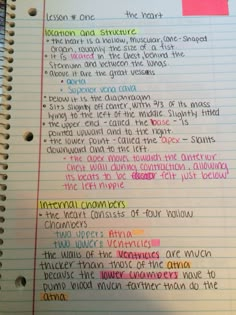 lesson # one the heart
location and structure
• the heart is a hollow, muscular, cone-shaped
organ, roughly the size of a fist.
• it is located in the chest, behind the
sternum and between the lungs
• above it are the great vessels
• aorta
• superior vena cava
• below it is the diaphragm
• sits slightly off center, with 2/3 of its mass
lying to the left of the midline. slightly tilted
• the upper end - called the base - is
pointed upward and to the right.
• the lower point - called the apex - slants
downward and to the left
• the apex moves towards the anterior
chest wall during contraction, allowing
its beats to be felt just below
the left nipple.
internal chambers
• the heart consists of four hollow
chambers
two uppers Atria
two lowers ventricles
the walls of the ventricles are much
thicker than those of the atria
because the lower chambers have to
pump blood much farther than do the
atria.